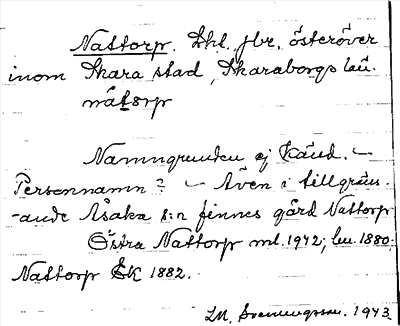 Nattorp. Lht. jbr. österöver
inom Skara stad, Skaraborgs län.
nátorp
Namngrunden ej känd. –
Personnamn? – Även i tillgräns-
-ande Åsaka s:n finnes gård Nattorp
Östra Nattorp ml. 1942; lm. 1880.
Nattorp EK 1882.
LM. Svenningsson. 1943